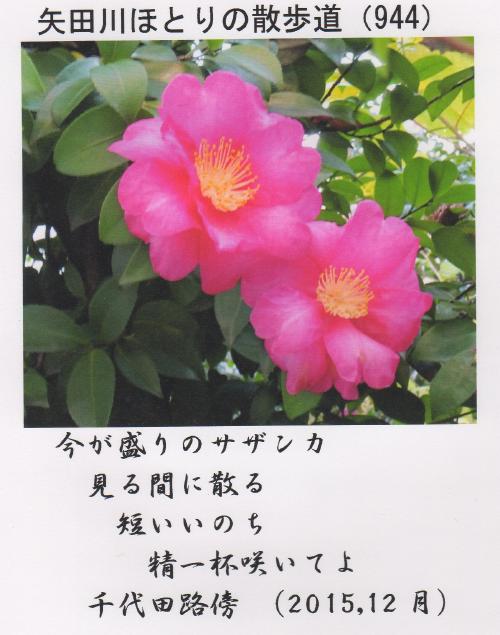 矢田川ほとりの散歩道（944）
今が盛りのサザンカ
見る間に散る
短いいのち
精一杯咲いてよ
千代田路傍 （2015,12月）